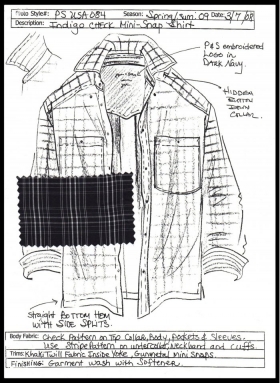 Style#: PS USA 084 Season: Spring/Sum. 09 Date: 3/7/08
Description: Indigo check Mini-Snap Shirt
P&S embroidered
Logo in
Dark Navy.
Hidden
Button
Down
Collar.
Straight Bottom Hem
with side splits.
Body Fabric: Check Pattern on Top Collar, Body, Pockets & Sleeves.
Use Stripe Pattern on undercollar, Neckband and Cuffs.
Trims: Khaki Twill Fabric Inside Yoke, Gunmetal Mini Snaps.
Finishing: Garment Wash with Softener.